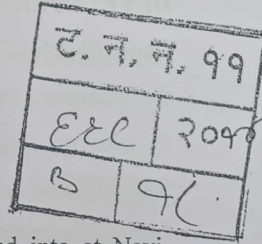 ट. न. न. ११
६९८ २०१४
B १८
into at Navi